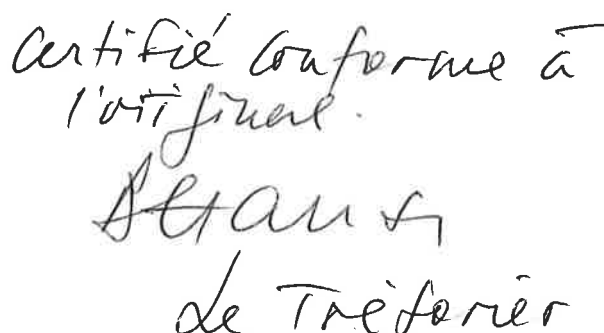 Certifié conforme à
l'original.
Le Trésorier